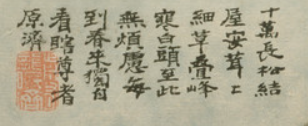 十萬長松結
屋安茸〻
細草疊峰
寬白頭至此
無煩慮每
到春來獨自
看瞎尊者
原濟